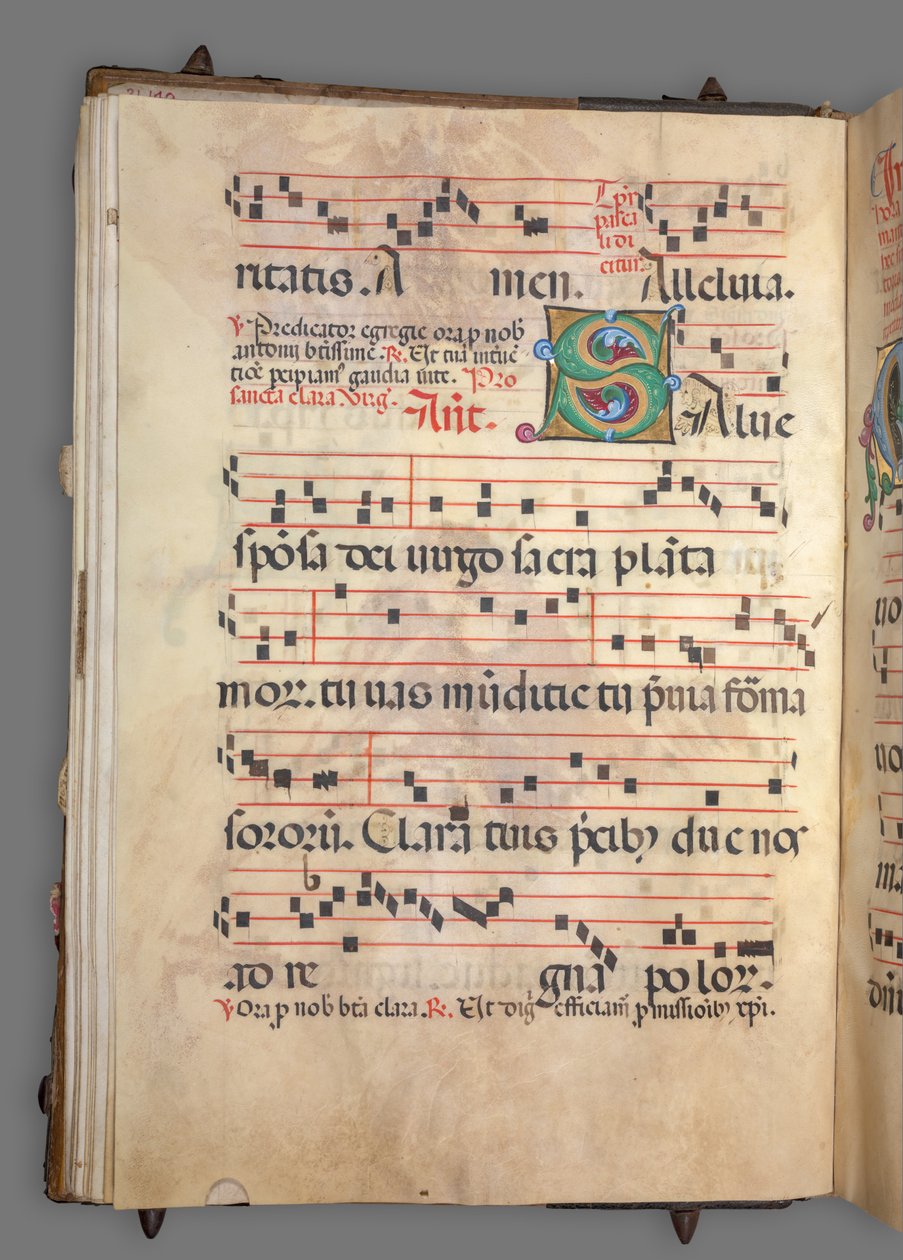 ritatis. A men. Alleluia.
T. pr̄ pasca li di citur.
℣ Predicator egregie ora ꝓ nob̄
antonij btissime. ℟. Et tua interue
tiōe ꝑcipiam᾽ gaudia uite. Pro
sancta clara Virḡ. Ant̄.
S Alue
spōsa dei uirgo sacra plāta
moꝝ. tu uas mūditie tu p̄uia fōma
sororū. Clara tuis p̄cibꝫ duc nos
ad re gna poloꝝ.
℣ Ora ꝓ nob̄ btā clara. ℟. Et dig̅ efficiam᾽ ꝓmissioībꝫ xp̄i.